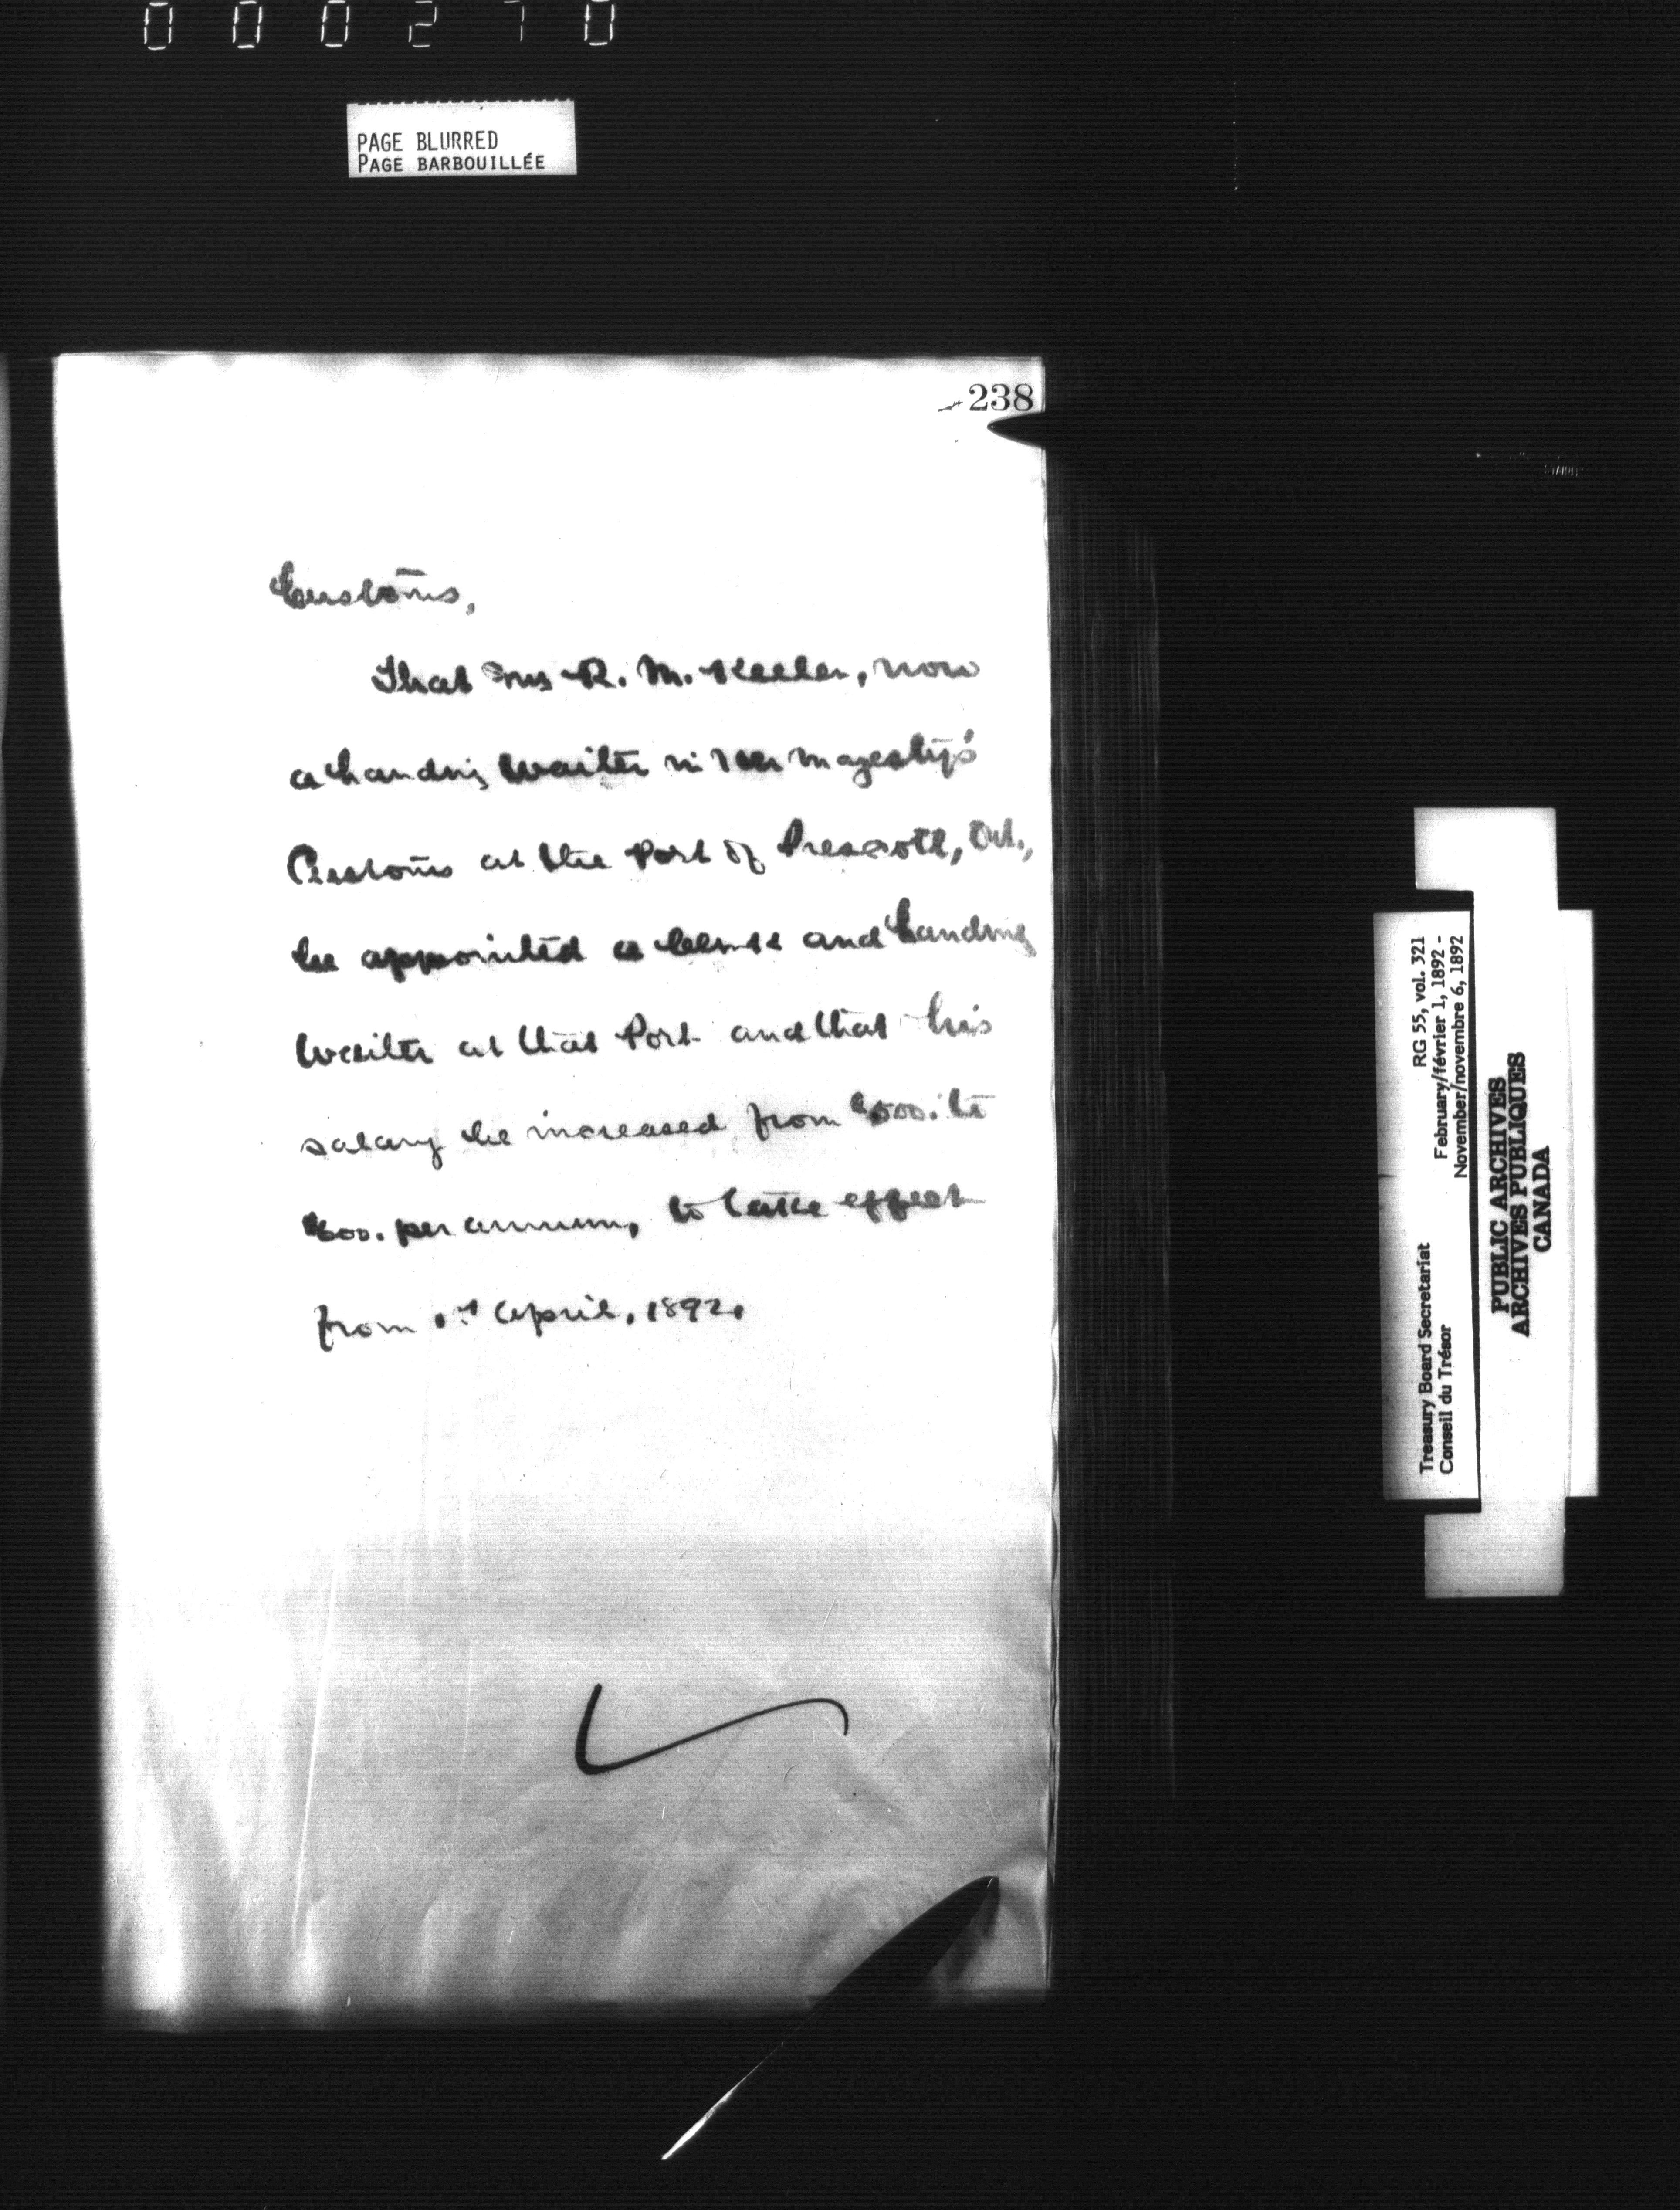 000270
PAGE BLURRED
PAGE BARBOUILLÉE
238
Customs,
That Mr R. M. Keeler, now
a Landing Waiter in Her Majesty's
Customs at the Port of Prescott, Ont.,
be appointed a Clerk and Landing
Waiter at that Port and that his
salary be increased from $500. to
$600. per annum, to take effect
from 1st April, 1892.
Treasury Board Secretariat RG 55, vol. 321
Conseil du Trésor February/février 1, 1892 -
November/novembre 6, 1892
PUBLIC ARCHIVES
ARCHIVES PUBLIQUES
CANADA